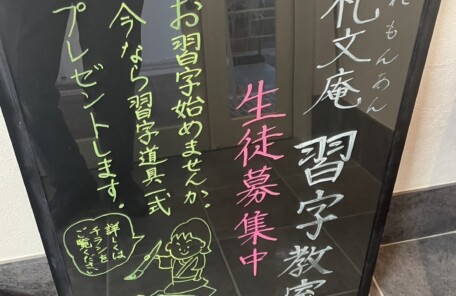 れもんあん
礼文庵 習字教室
生徒募集中
お習字始めませんか。
今なら習字道具一式
プレゼントします。
詳しくは
チラシを
ご覧ください